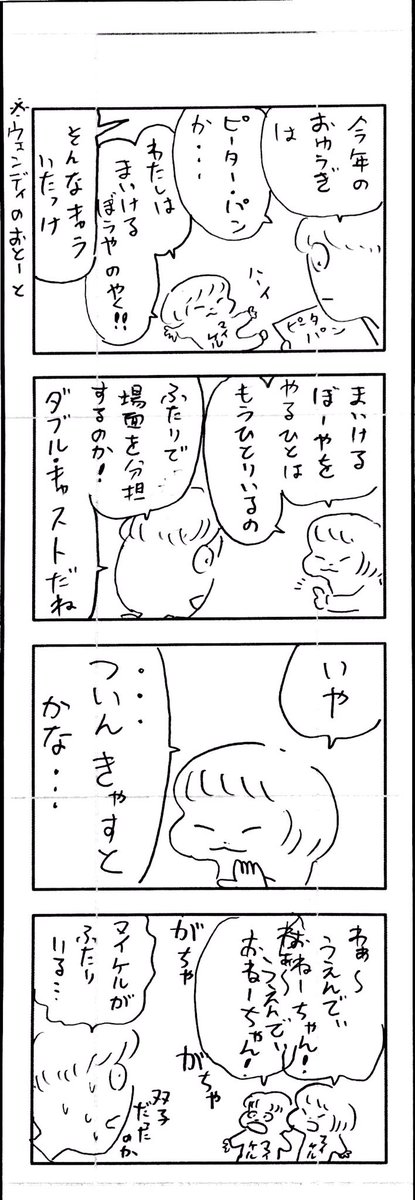 今年の
おゆうぎ
は
ピーター・パン
か・・・
わたしは
まいける
ぼうやのやく!!
そんなキャラ
いたっけ
ハイ
マイ
ケル
ピーター
パン
※ウェンディのおとーと
まいける
ぼーやを
やるひとは
もうひとりいるの
ふたりで
場面を分担
するのか!
ダブル・キャストだね
いや
・・・
ついんきゃすと
かな・・・
わぁ〜
うぇんでぃ
おねーちゃん!
わぁ〜
うぇんでぃ
おねーちゃん!
がちゃ
がちゃ
マイ
ケル
マイ
ケル
マイケルが
ふたり
いる…
双子
だった
のか